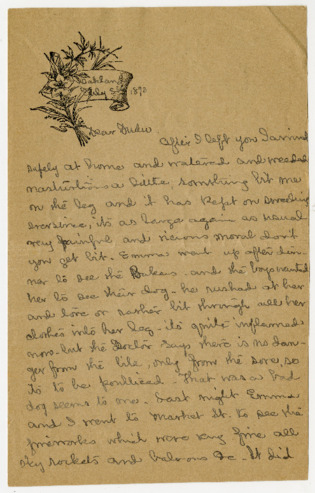 Oakland
July 5 1890
Dear Dudu
After I left you I arrived
safely at home and watered and weeded
nasturtiums a little, something bit me
on the leg and it has kept on swelling
ever since, its as large again as usual
very painful and vicious moral don't
you get bit. Emma went up after din-
ner to see the and the boys wanted
her to see their dog - he rushed at her
and tore or rather bit through all her
clothes into her leg - its quite inflamed
now. but the Doctor says there is no dan-
ger from the bite, only from the sore, so
its to be poulticed - That was a bad
dog seems to me. Last night Emma
and I went to Market St. to see the
fireworks which were very fine all
sky rockets and balloons &c. It did